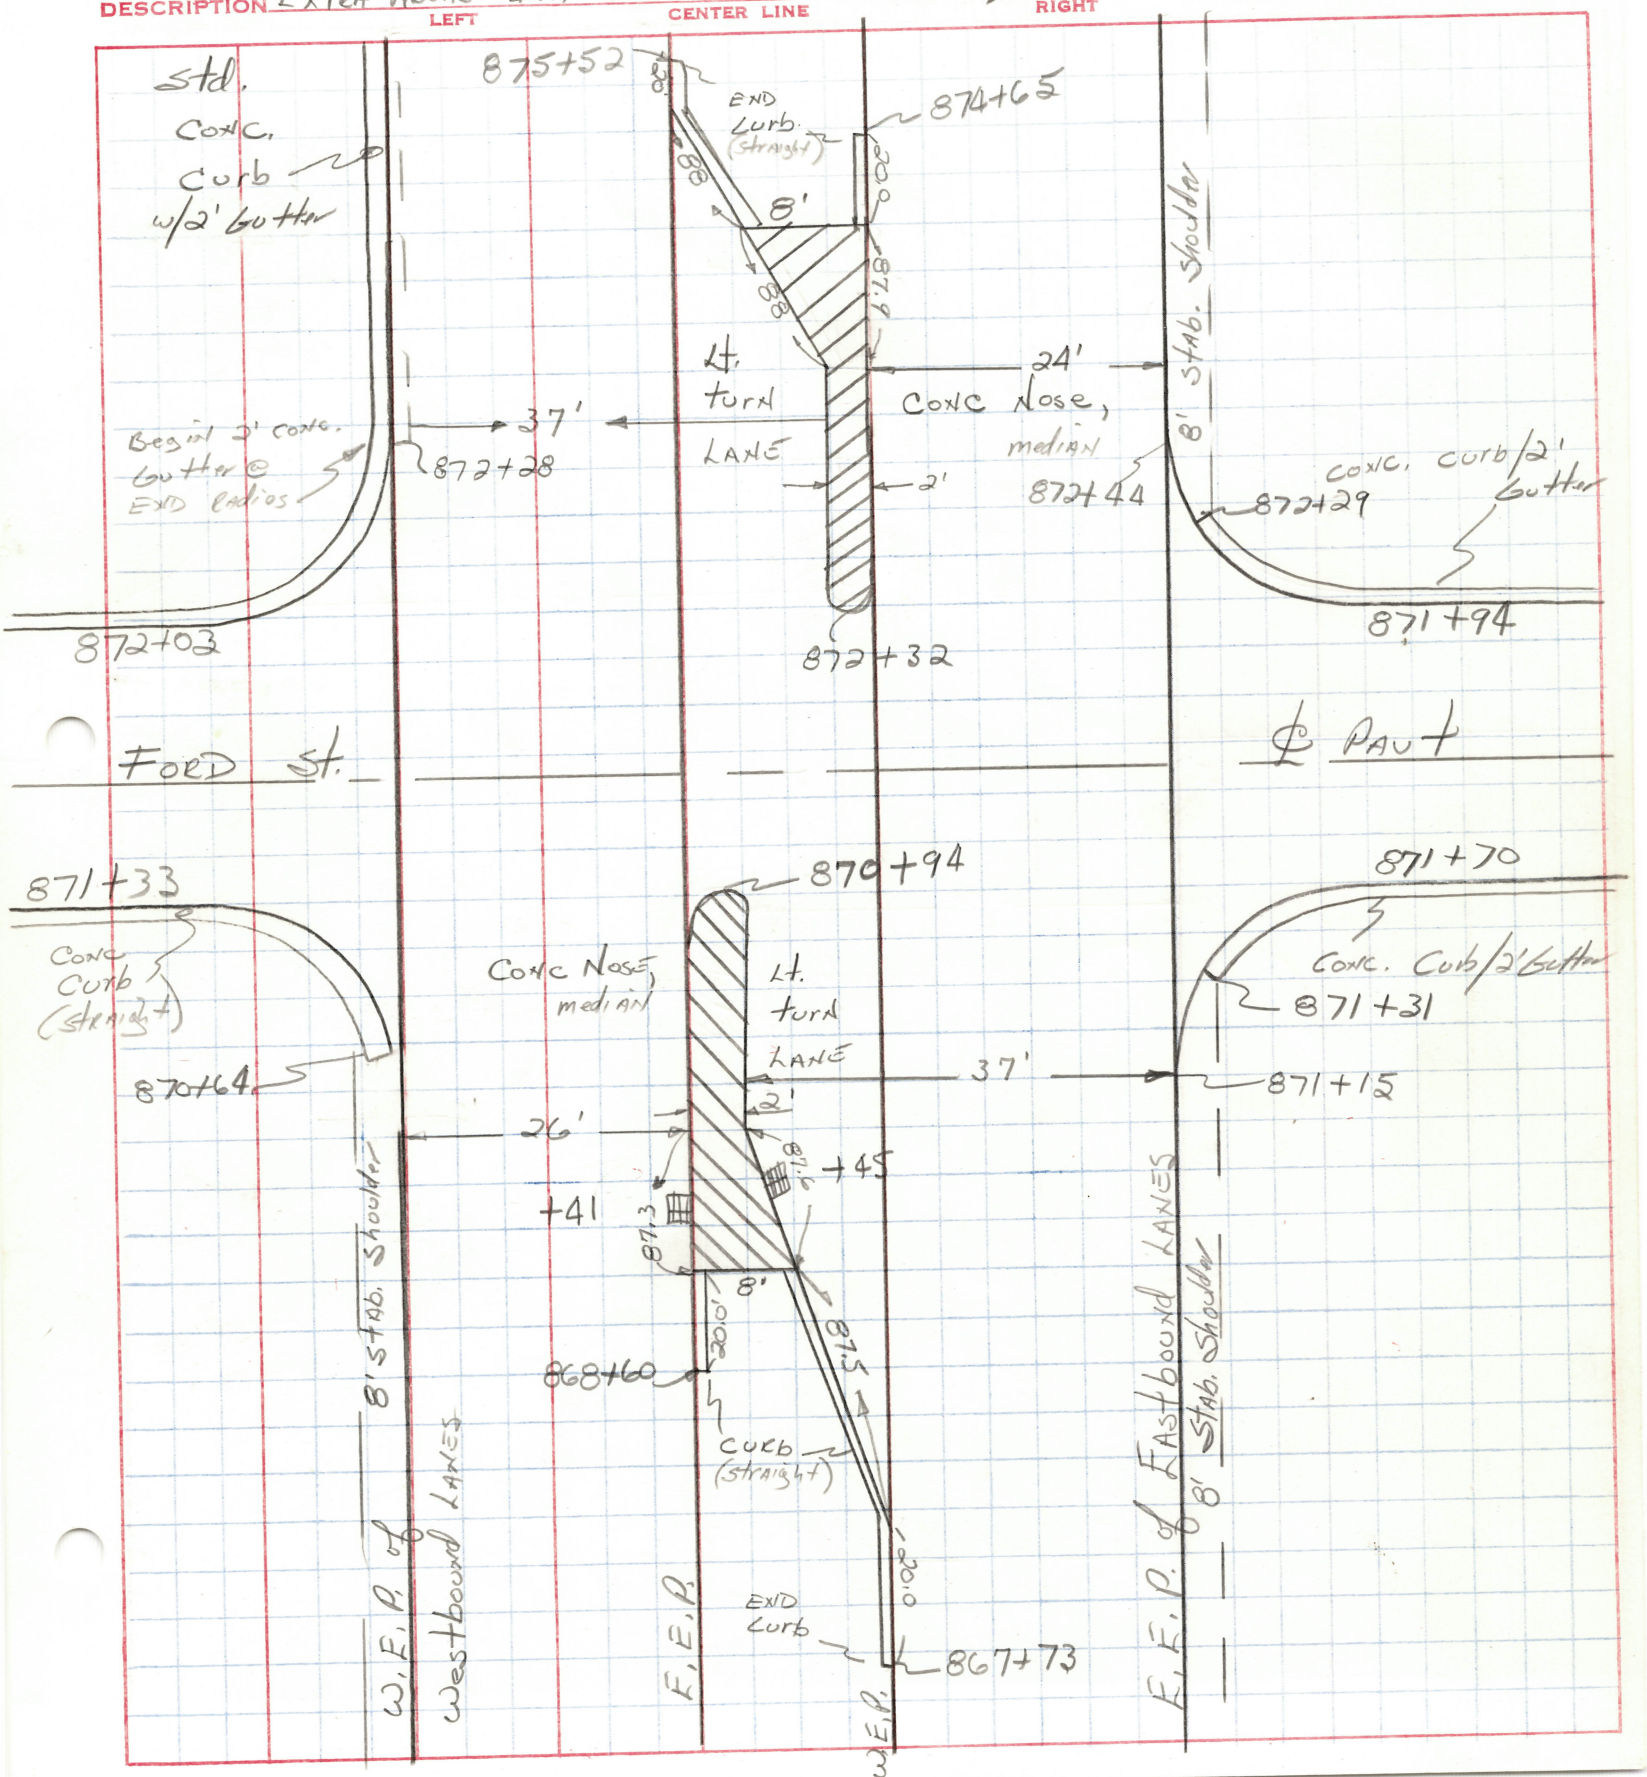 DESCRIPTION
LEFT
CENTER LINE
RIGHT
Std.
Conc.
Curb
w/2' Gutter
875+52
20'
88
END
Curb.
(straight)
874+65
20.0
8'
88
87.9
8' Stab. Shoulder
Lt.
turn
LANE
24'
Conc Nose,
median
37'
Begin 2' conc.
Gutter @
END Radios
872+28
2'
872+44
conc. curb/2'
Gutter
872+29
872+03
872+32
871+94
FORD St.
℄ PAVT
871+33
870+94
871+70
Conc
Curb
(straight)
Conc Nose,
median
Lt.
turn
LANE
Conc. Curb/2' Gutter
871+31
870+64
37'
871+15
2'
26'
87.6
+45
+41
87.3
8' Stab. Shoulder
8'
20.0'
87.5
868+60
curb
(straight)
W.E.P. of
Westbound LANES
E.E.P.
END
Curb
20.0
867+73
W.E.P.
E.E.P. of Eastbound LANES
8' Stab. Shoulder